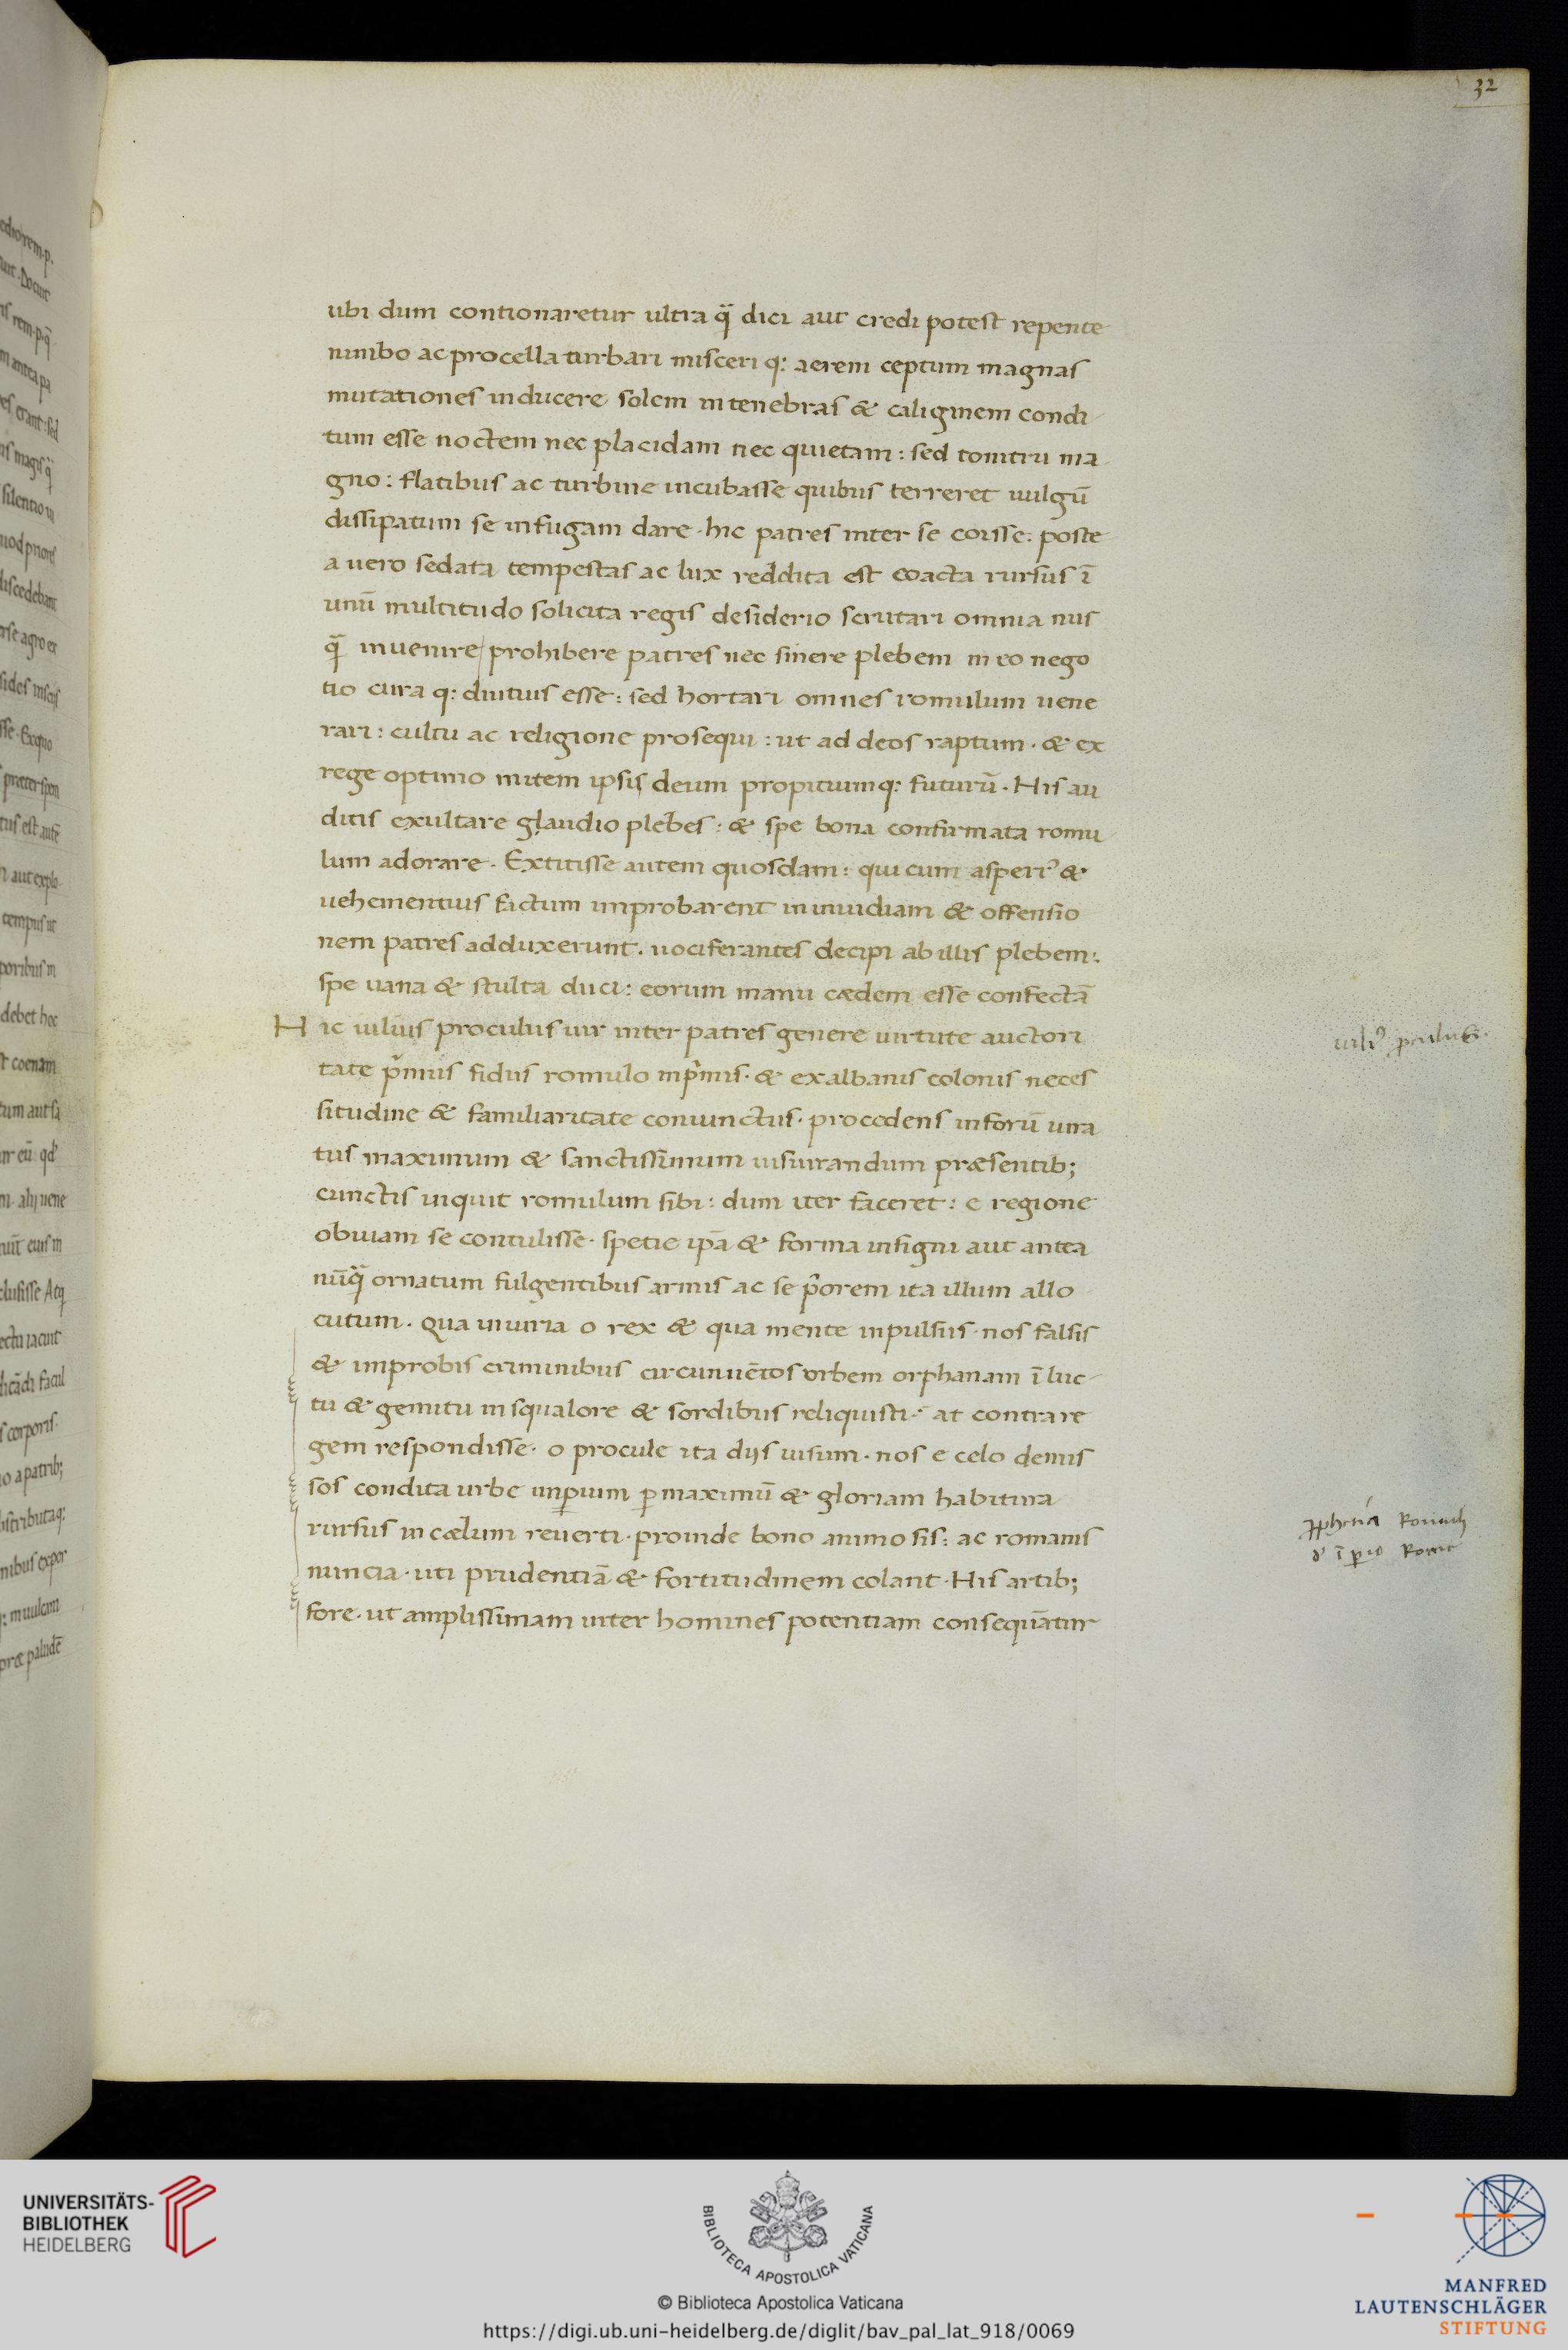 32
ubi dum contionaretur ultra q̃ dici aut credi potest repente
nimbo ac procella turbari misceri q: aerem ceptum magnas
mutationes inducere solem in tenebras & caliginem condi
tum esse noctem nec placidam nec quietam: sed tonitru ma
gno: flatibus ac turbine incubasse quibus terreret uulgũ
dissipatum se in fugam dare · hic patres inter se coisse: poste
a uero sedata tempestas ac lux reddita est coacta rursus ĩ
unũ multitudo solicita regis desiderio scrutari omnia nus
q̃ inuenire/prohibere patres nec sinere plebem in eo nego
tio cura q: diutius esse: sed hortari omnes romulum uene
rari: cultu ac religione prosequi: ut ad deos raptum · & ex
rege optimo mitem ipsis deum propitiumq: futurũ · His au
ditis exultare glaudio plebes: & spe bona confirmata romu
lum adorare · Extitisse autem quosdam: qui cum asperiꝰ &
uehementius factum improbarent in inuidiam & offensio
nem patres adduxerunt · uociferantes decipi ab illis plebem:
spe uana & stulta duci: eorum manu cædem esse confectã
Hic iulius proculus uir inter patres genere uirtute auctori
tate p̃mus fidus romulo inp̃mis · & ex albanis colonis neces
situdine & familiaritate coniunctus · procedens in forũ iura
tus maximum & sanctissimum iusiurandum præsentib;
cunctis inquit romulum sibi: dum iter faceret: e regione
obuiam se contulisse · spetie ip̃a & forma insigni aut antea
nũq̃ ornatum fulgentibus armis ac se p̃orem ita illum allo
cutum · qua iniuria o rex & qua mente inpulsus · nos falsis
& improbis criminibus circumuẽtos orbem orphanam ĩ luc
tu & gemitu in squalore & sordibus reliquisti · at contra re
gem respondisse · o procule ita dijs uisum · nos e celo demis
sos condita urbe imꝑium ꝑ maximũ & gloriam habitura
rursus in cælum reuerti · proinde bono animo sis: ac romanis
nuncia · uti prudentiã & fortitudinem colant · His artib;
fore · ut amplissimam inter homines potentiam consequãtur
iuliꝰ ꝓculus
UNIVERSITÄTS-
BIBLIOTHEK
HEIDELBERG
BIBLIOTECA APOSTOLICA VATICANA
© Biblioteca Apostolica Vaticana
https://digi.ub.uni-heidelberg.de/diglit/bav_pal_lat_918/0069
MANFRED
LAUTENSCHLÄGER
STIFTUNG